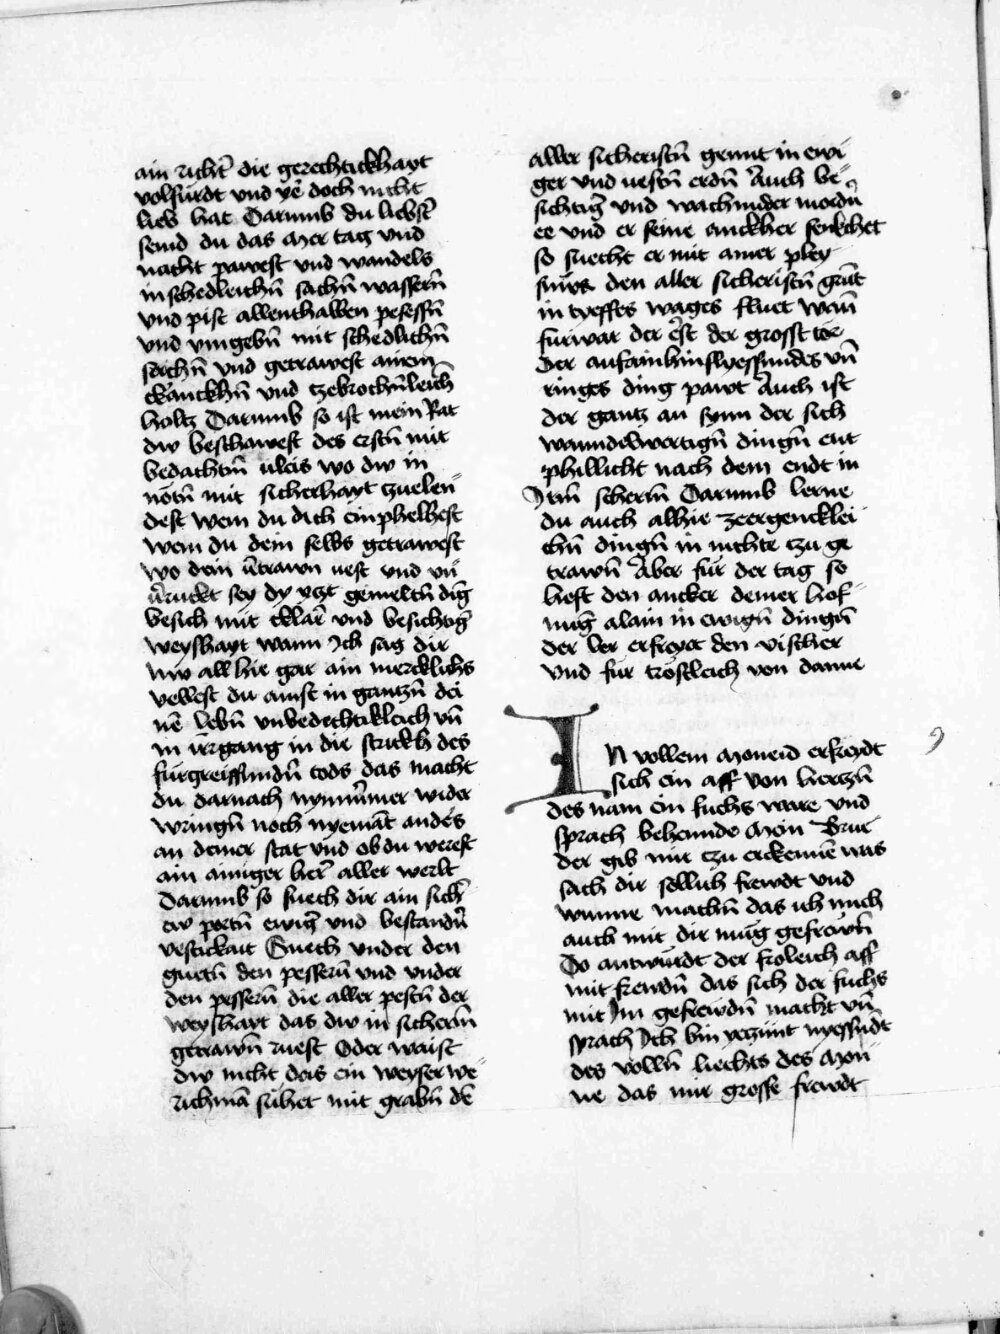 ain richt̄ die gerechtickhayt
volfürdt vnd yē doch nicht
lieb hat Darumb du liebst̄
seind du das mer tag vnd
nacht pawest vnd wandels
in schedleichn̄ sachn̄ wassern̄
vnd pist allenthalben pesessn̄
vnd vmgebn̄ mit schedlichn̄
sachn̄ vnd getrawest ainem
ckranckhn̄ vnd tzebrochn̄leich
holtz Darumb so ist mein Rat
dw beschawest des erstn̄ mit
bedachtn̄ uleis wo dw in
nötn̄ mit sicherhayt zuelen
dest wem du dich einphelhest
wem du dein selbs getrawest
wo dein v̄trawn vest vnd vn̄
v̄ruckt sey dy yetzt gemeltn̄ diḡ
besich mit cklar̄ vnd besichtiḡ
weyshayt wann Ich sag dir
nw all hie gar ain mercklichs
vellest du amst in gantzn̄ dei
nē lebn̄ vnbedechtikleich vn̄
in v̄rgang in die strickh des
fürgreiffundn̄ tods das macht
du darnach nymm̄mer wider
wringn̄ noch nyemāt andēs
an deiner stat vnd ob du werest
ain ainiger her̄ aller werlt
Darumb so suech dir ain sich̄
ew portn̄ ewiḡ vnd bestandn̄
vestickait Suech vnder den
guetn̄ den pessern̄ vnd vnder
den pessern̄ die aller pestn̄ der
weyshayt das dw in sicherm̄
getrawn̄ ruest Oder waist
dw nicht das ein weyser we
richmā sihet mit grabn̄ dē
aller sicheristn̄ grunt in ewi
ger vnd vestn̄ erdn̄ Auch be
sichtiḡ vnd wachunder mordn̄
ee vnd er seine anckher senkchet
so suecht er mit ainer pley
snür den aller sicheristn̄ grūt
in tyeffes wages fluet wan̄
fürwar der ēst der grosst tor
Der auf rinhinflyessundes vn̄
ringes ding pawt Auch ist
der gantz an synn der sich
wanndelwertign̄ dingn̄ ent
phillicht nach dem endt in
Irm̄ scherm̄ Darumb lerne
du auch alhie zeergencklei
chn̄ dingn̄ in nichte tzu ge
trawn̄ Aber für der tag so
heft den ancker deiner hof
nūg alain in ewign̄ dingn̄
der ler erfreyt den vischer
vnd für tröstleich von danne
IN vollem moneid erfreydt
sich ein aff von hertzn̄
des nam ein fuchs ware vnd
sprach behennde mein Brue
der gib mir tzu erckennē was
sach dir sollich frewdt vnd
wunne machn̄ das ich mich
auch mit dir mūg gefrewn̄
Do antwurdt der froleich aff
mit frewdn̄ das sich der fuchs
mit Im gefrewdn̄ macht vn̄
sprach Ich bin yetzunt nyessūdt
des volln̄ liechts des mon
ne das mir grosse frewdt